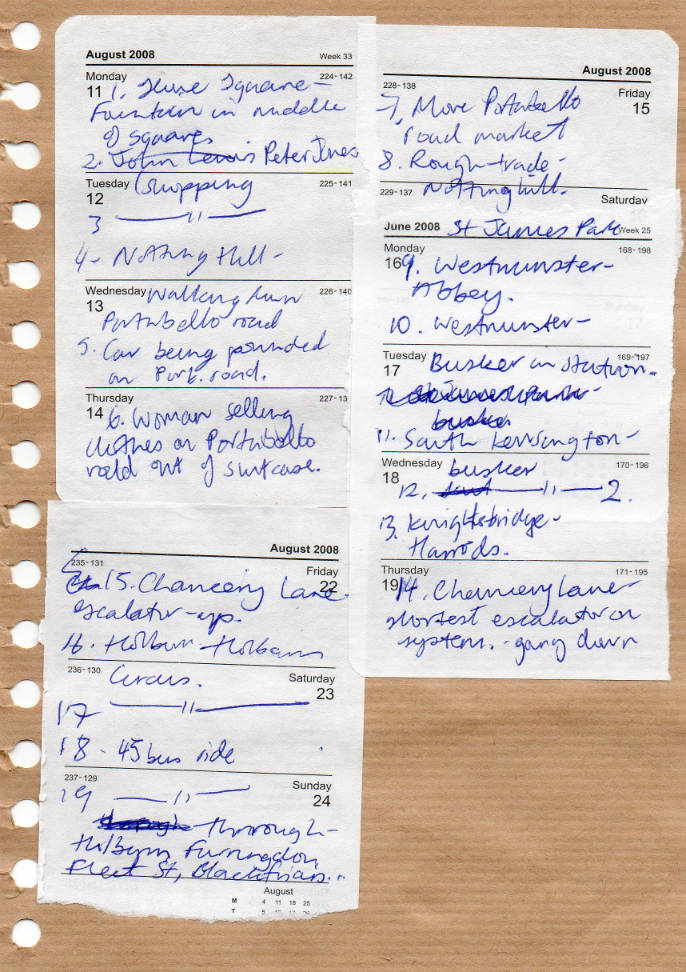 August 2008 Week 33
Monday 224-142
11 1. Slune Square -
Fountain in middle
of squares
2. John Lewis Peter Jones
Tuesday Shopping 225-141
12
3 — 11 —
4 - Notting Hill -
Wednesday Walking down 226-140
13 Portabello road
5. Car being pounded
on Port. road.
Thursday 227-13
14 6. Woman selling
clothes on Portabello
road out of suitcase.
August 2008
228-138 Friday
7, More Portabello 15
road market
8. Rough trade -
229-137 Notting hill. Saturday
June 2008 St James Park Week 25
Monday 168-198
16 9. Westminster -
Abbey.
10. Westminster -
Tuesday Busker in station. 169-197
17
busker
11. South Kensington -
Wednesday busker 170-196
18
12, — 11 — 2.
13. Knightsbridge -
Harrods.
Thursday 171-195
19 14. Chancery Lane -
shortest escalator on
system. - going down
August 2008
235-131 Friday
15. Chancery Lane. 22
escalator - up.
16. Holburn - Holburn
236-130 Circus. Saturday
23
17 — 11 —
18 - 45 bus ride
237-129 Sunday
19 — 11 — 24
through -
Holburn Farringdon,
Fleet St, Blackfriars...
August
M 4 11 18 25
T 5 12 19 26